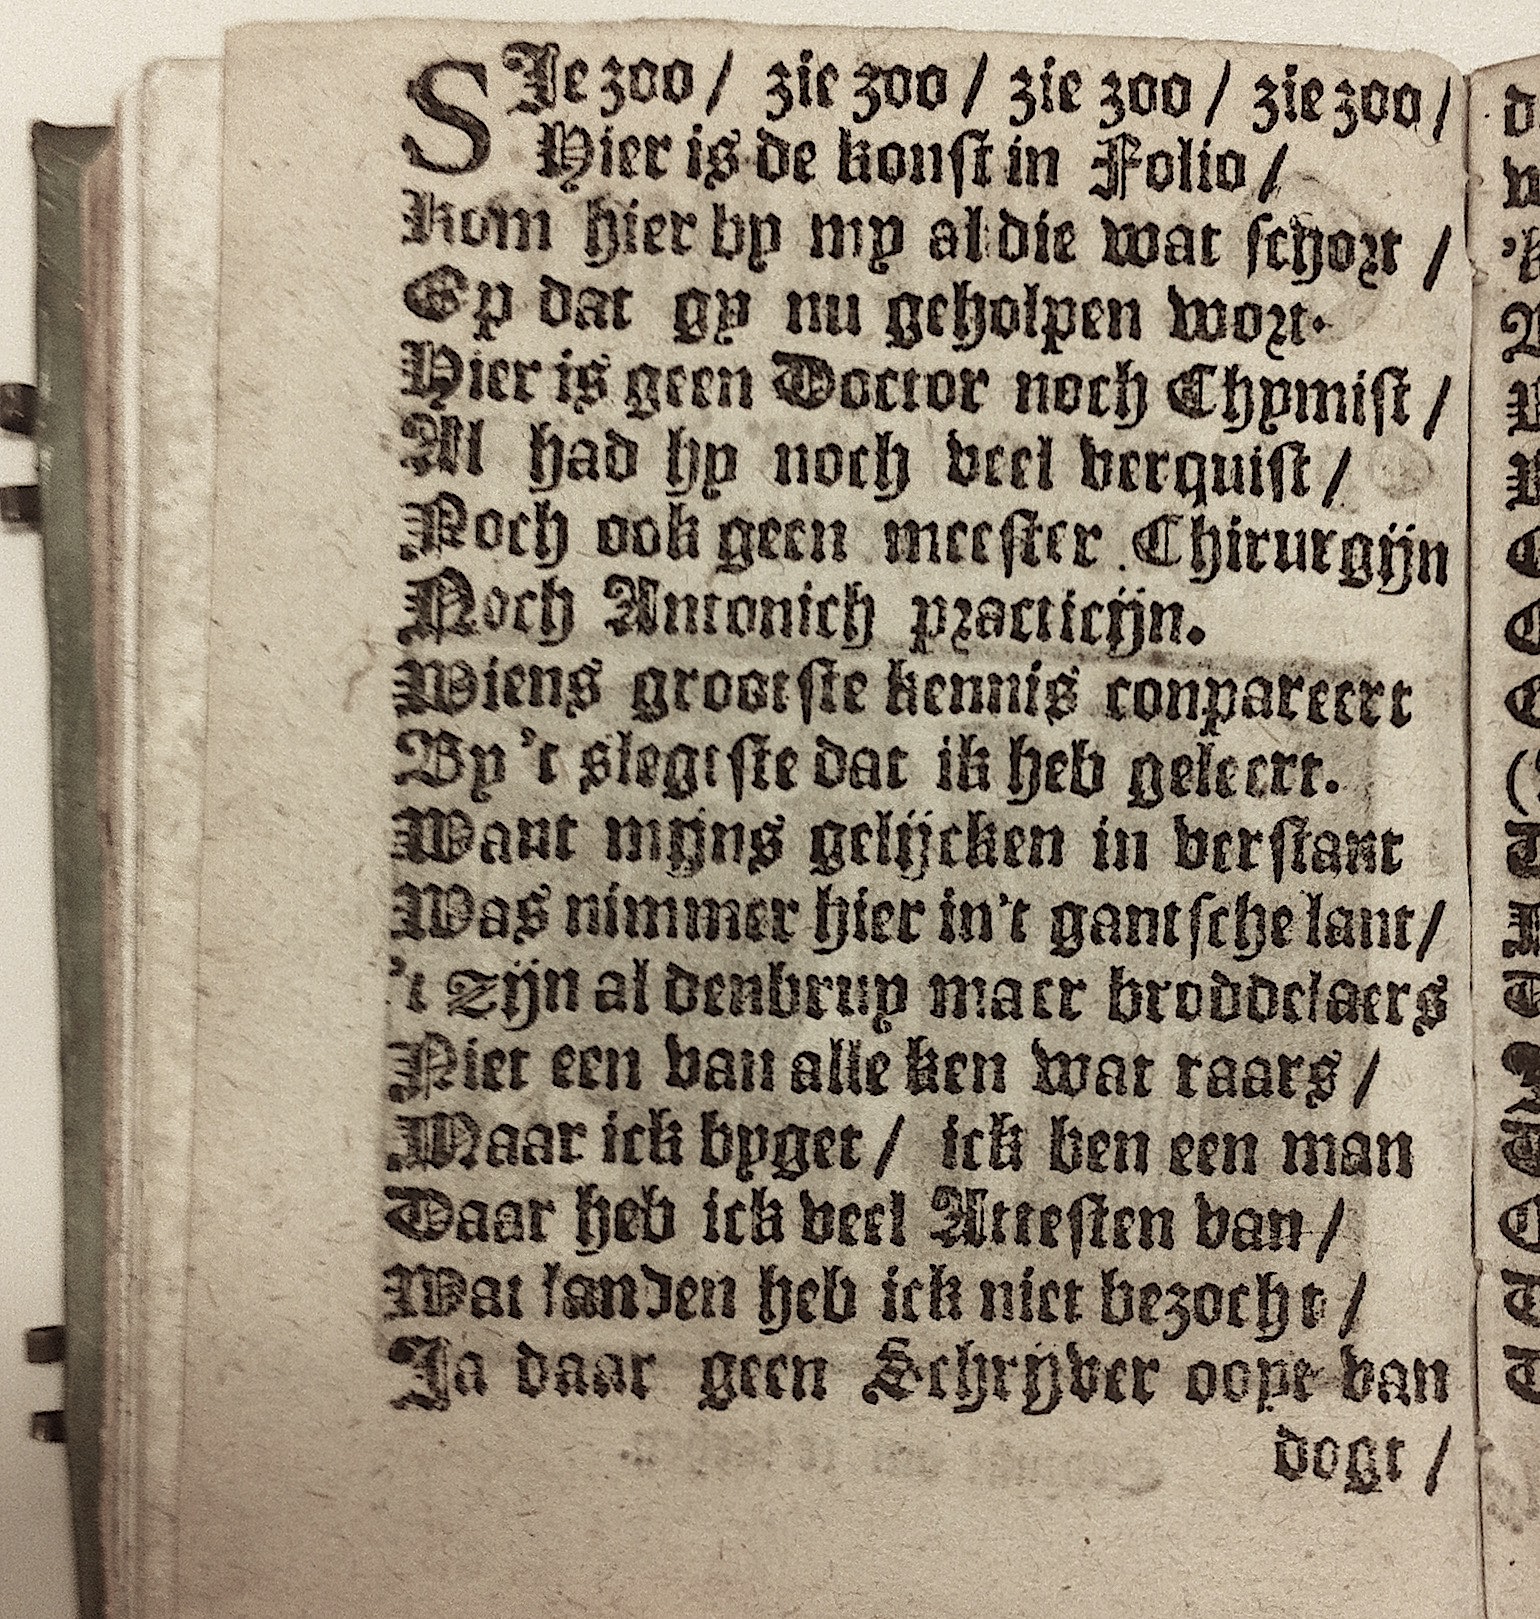 SIe zoo / zie zoo / zie zoo / zie zoo /
Hier is de konst in Folio /
Kom hier by my al die wat schort /
Ey dat gy nu geholpen wort.
Hier is geen Doctor noch Chymist /
Al had hy noch veel verquist /
Noch ook geen meester Chirurgijn
Noch Antonich practicijn.
Wiens grootste kennis conpareert
By 't slegtste dat ik heb geleert.
Want mijns gelijcken in verstant
Was nimmer hier in't gantsche lant /
't Zijn al denbruy maer broddelaers
Niet een van alle ken wat raars /
Maar ick byget / ick ben een man
Daar heb ick veel Attesten van /
Wat landen heb ick niet bezocht /
Ja daar geen Schrijver oope van
dogt /